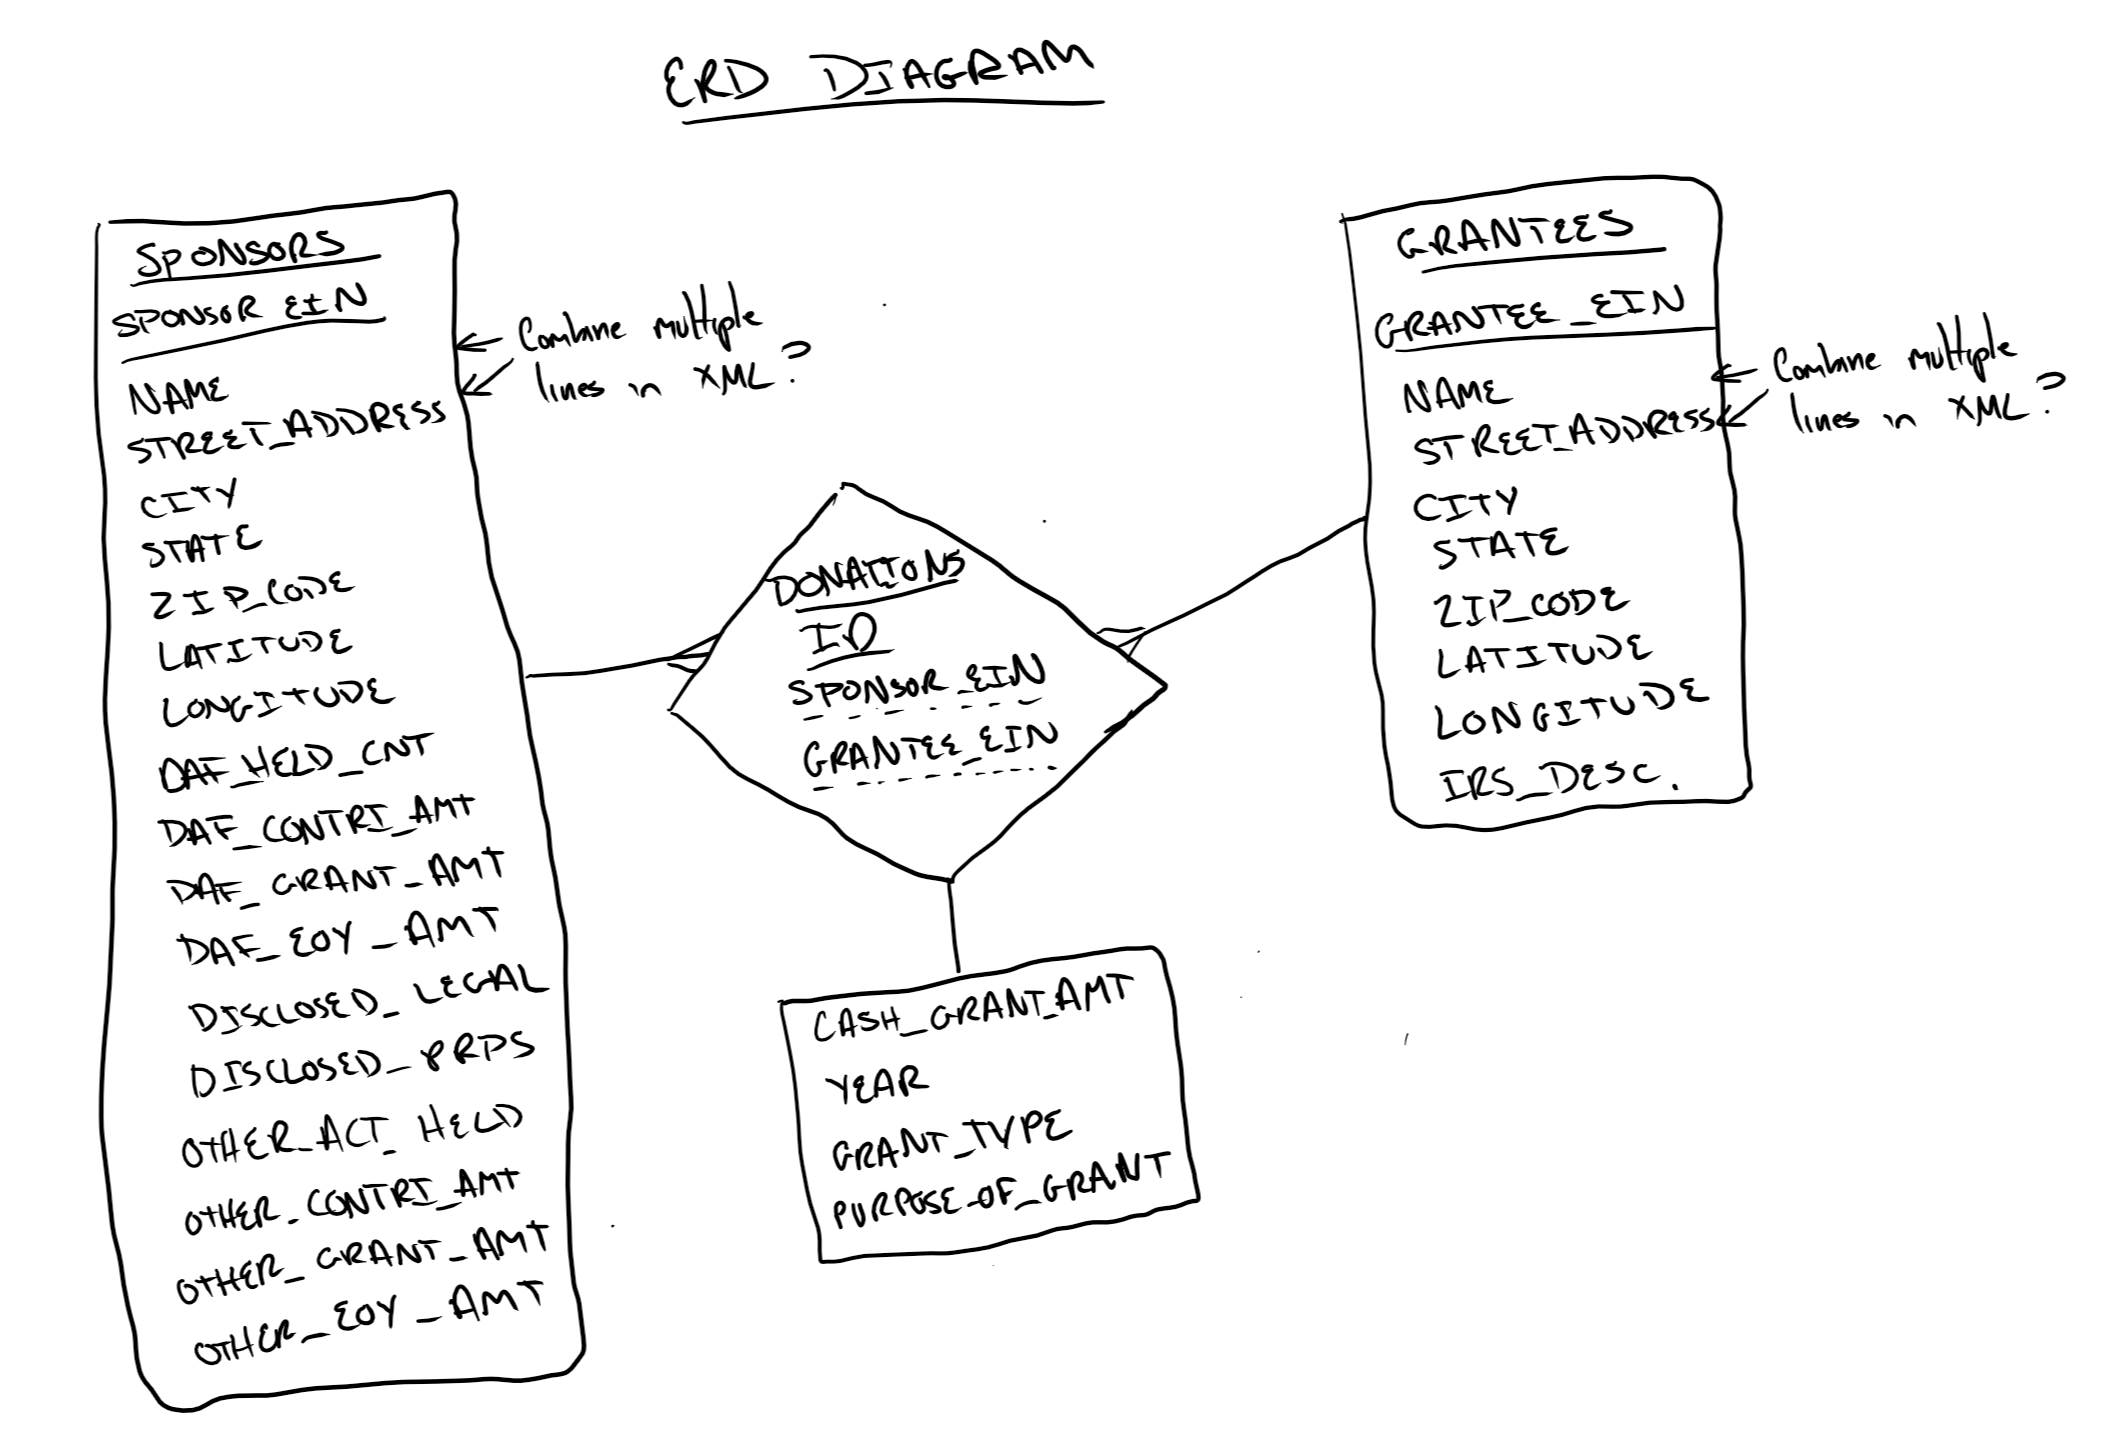 ERD DIAGRAM
SPONSORS
SPONSOR EIN
NAME
STREET_ADDRESS
CITY
STATE
ZIP_CODE
LATITUDE
LONGITUDE
DAF_HELD_CNT
DAF_CONTRI_AMT
DAF_GRANT_AMT
DAF_EOY_AMT
DISCLOSED_LEGAL
DISCLOSED_PRPS
OTHER_ACT_HELD
OTHER_CONTRI_AMT
OTHER_GRANT_AMT
OTHER_EOY_AMT
Combine multiple
lines in XML?
DONATIONS
ID
SPONSOR_EIN
GRANTEE_EIN
CASH_GRANT_AMT
YEAR
GRANT_TYPE
PURPOSE_OF_GRANT
GRANTEES
GRANTEE_EIN
NAME
STREET_ADDRESS
CITY
STATE
ZIP_CODE
LATITUDE
LONGITUDE
IRS_DESC.
Combine multiple
lines in XML?